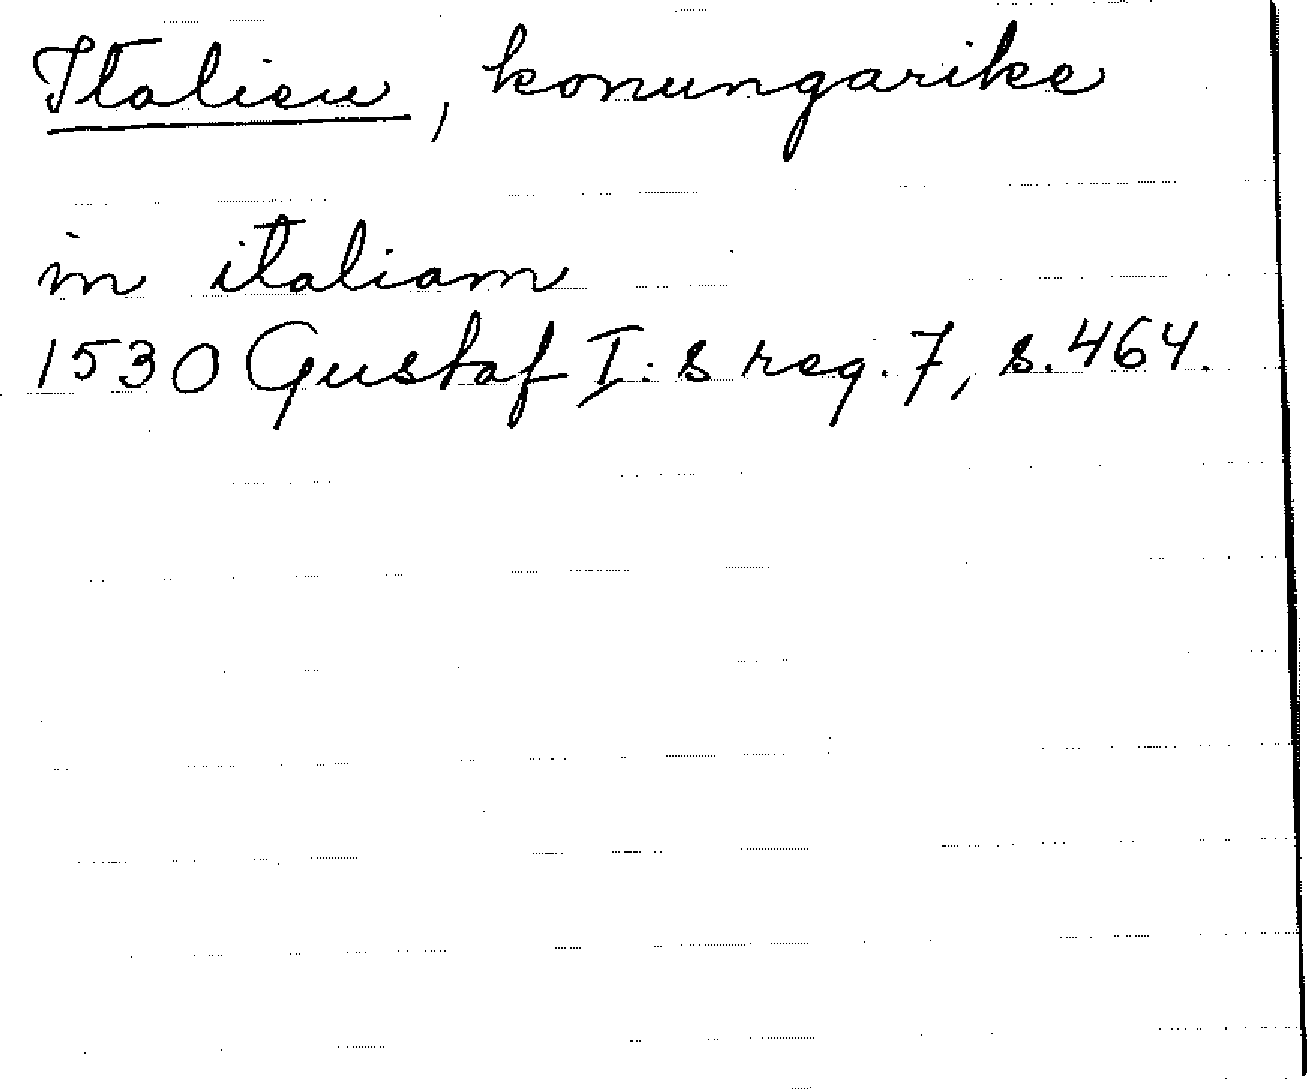 Italien, konungarike
in italiam
1530 Gustaf I:s reg. 7, s. 464.